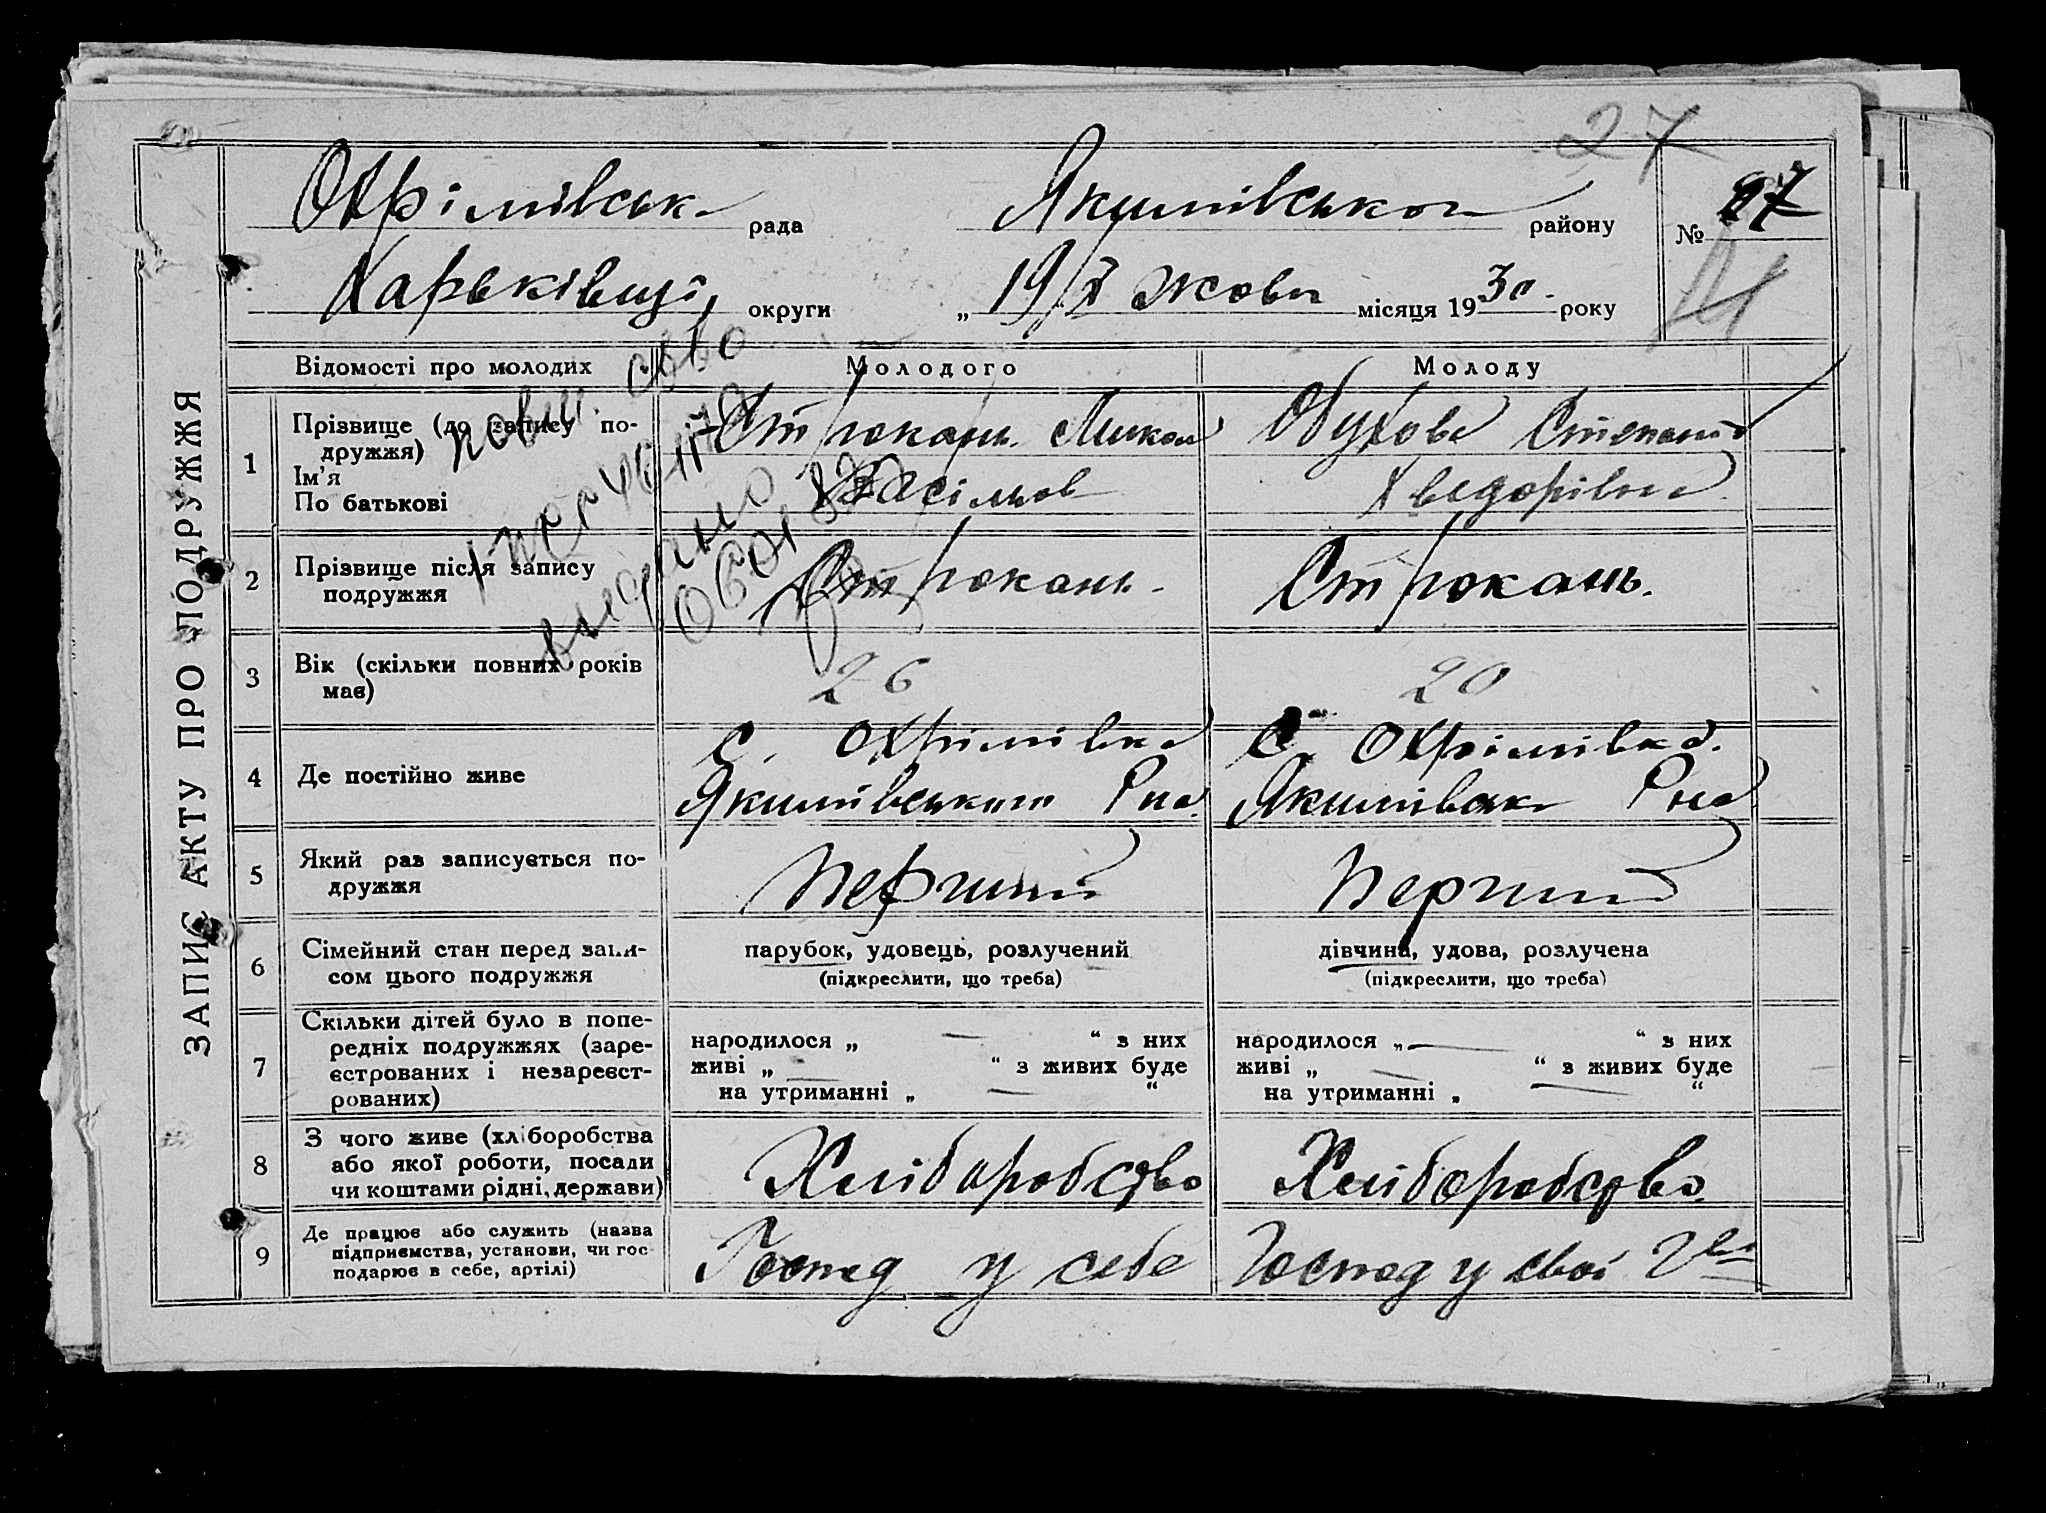 27
Охрімівськ рада Якимівського району № 27
Харьківщі округи „ 19/X жовтн місяця 1930 року
ЗАПИС АКТУ ПРО ПОДРУЖЖЯ
Відомості про молодих Молодого Молоду
1 Прізвище (до запису по-
дружжя)
Ім'я
По батькові
Строкань Микол
Васільов
Обухова Степанид
Хведорівна
повт. свво
выдано
2 Прізвище після запису
подружжя
Строкань. Строкань.
3 Вік (скільки повних років
має)
26 20
4 Де постійно живе
с. Охрімівка
Якимівського Рна.
С. Охрімівка.
Якимівськ Рна
5 Який раз записується по-
дружжя
Перший Перший
6 Сімейний стан перед запи-
сом цього подружжя
парубок, удовець, розлучений
(підкреслити, що треба)
дівчина, удова, розлучена
(підкреслити, що треба)
7 Скільки дітей було в попе-
редніх подружжях (заре-
єстрованих і незареєст-
рованих)
народилося „ — “ з них
живі „ — “ з живих буде
на утриманні „ — “
народилося „ — “ з них
живі „ — “ з живих буде
на утриманні „ — “
8 З чого живе (хліборобства
або якої роботи, посади
чи коштами рідні, держави)
Хліборобство Хліборобство
9 Де працює або служить (назва
підприємства, установи, чи гос
подарює в себе, артілі)
Господ у себе Господ у свої